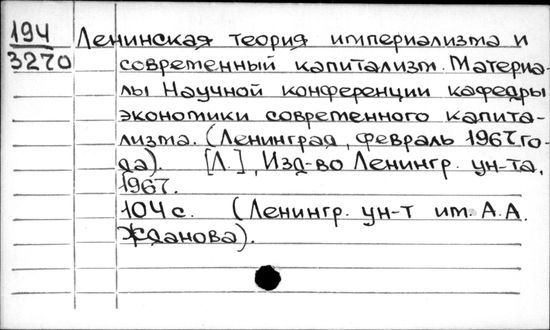 194
3270
Ленинская теория империализма и
современный капитализм. Материа-
лы Научной конференции кафедры
экономики современного капита-
лизма. (Ленинград, февраль 1967 го-
да). [Л.], Изд-во Ленингр. ун-та,
1967.
104 с. (Ленингр. ун-т им. А.А.
Жданова).